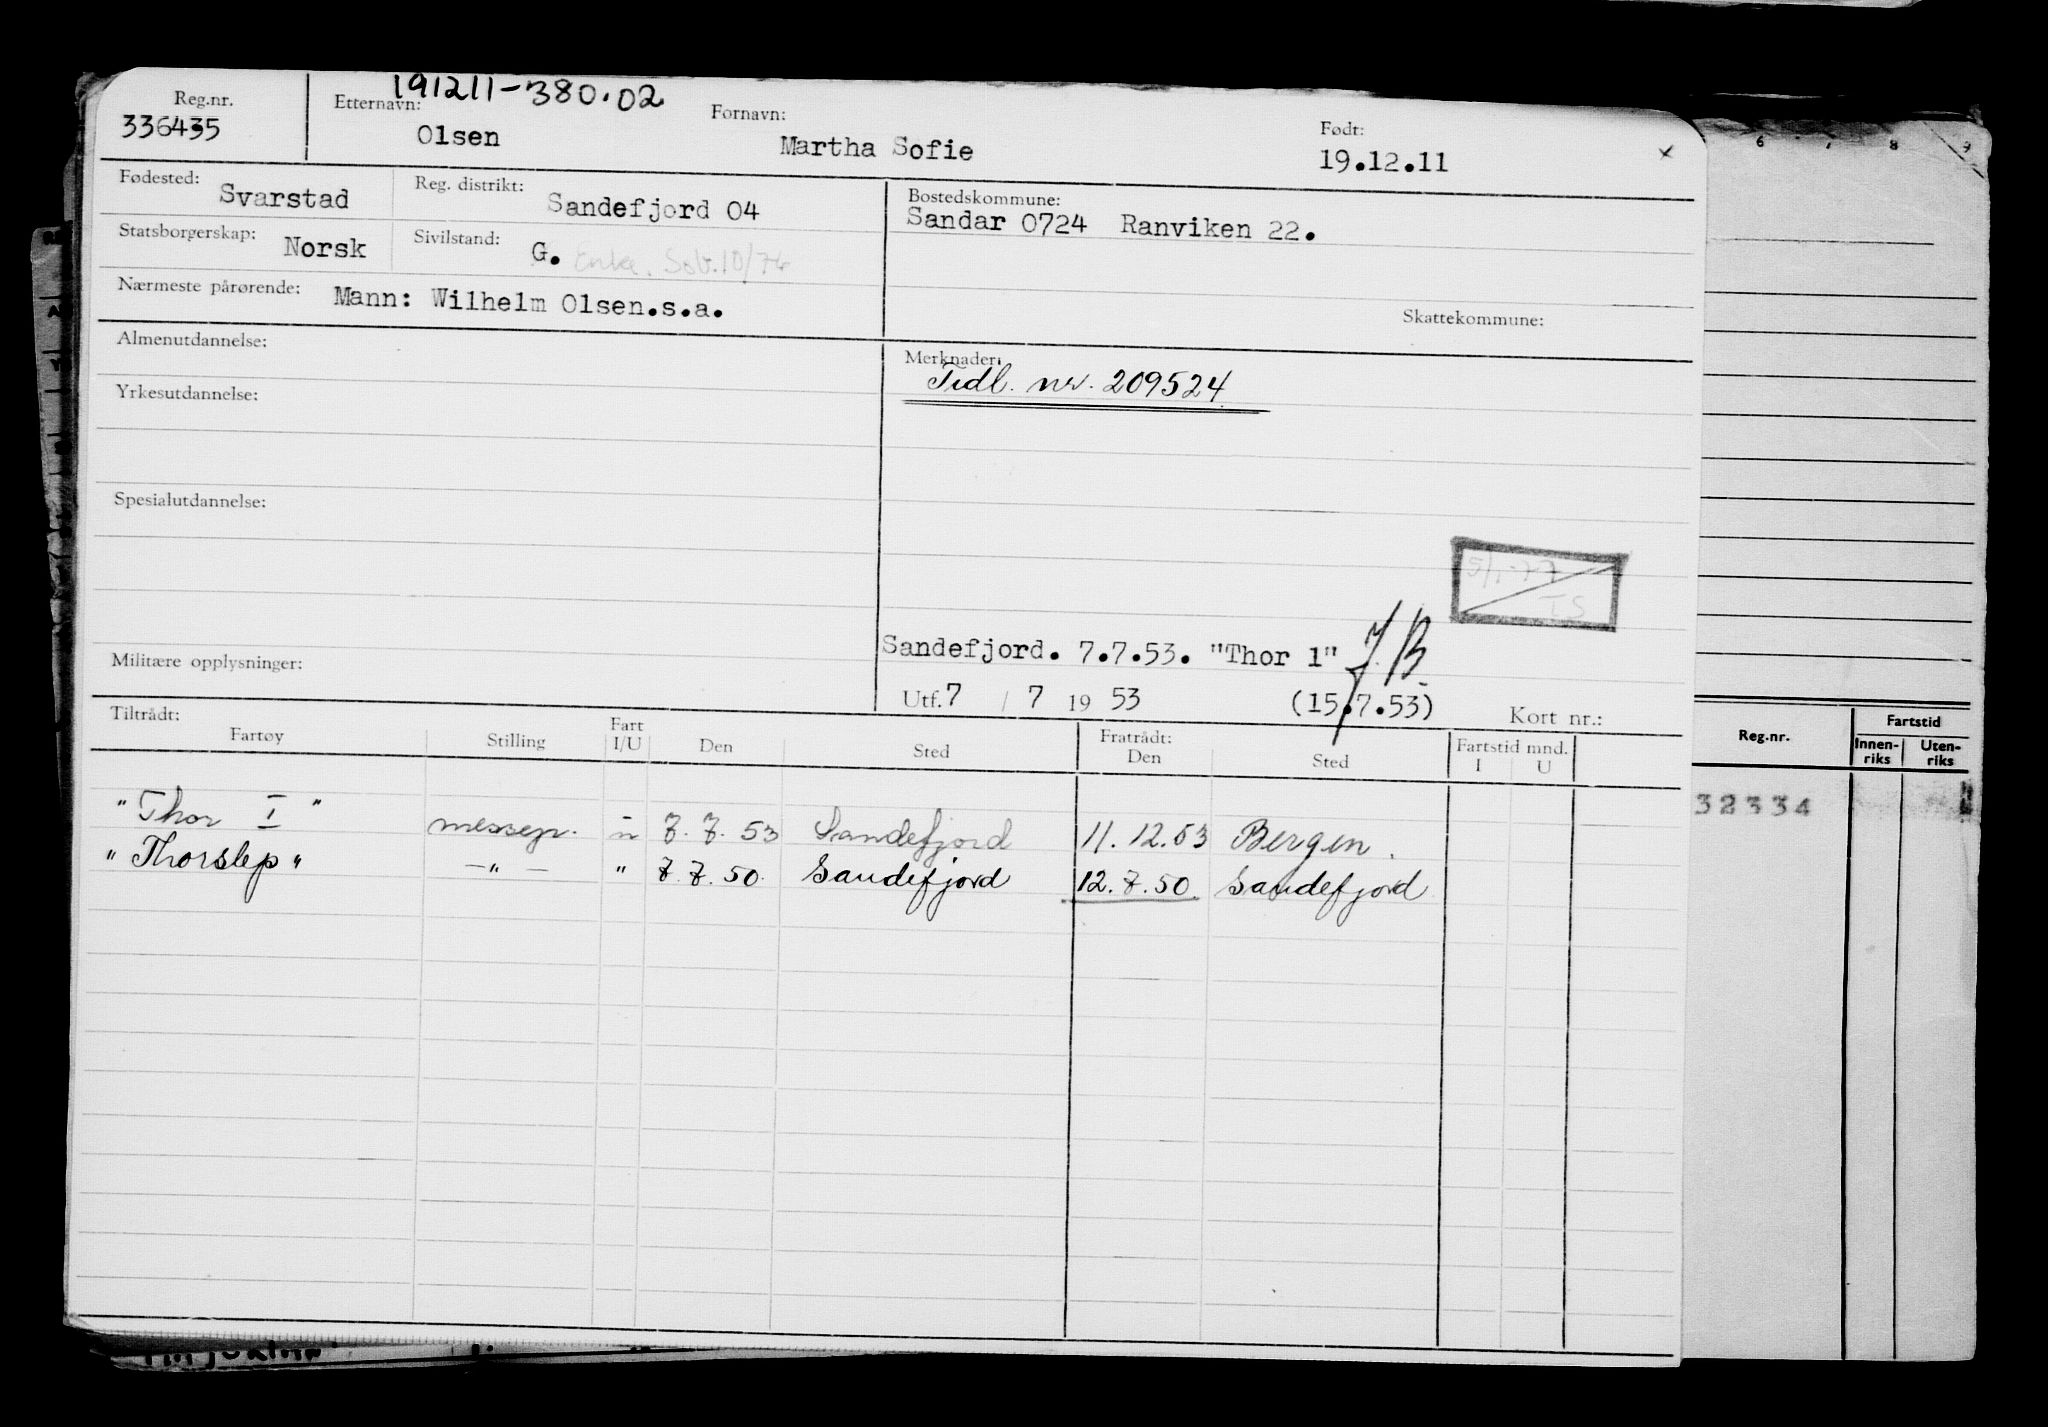 191211-380.02
Reg.nr. Etternavn: Fornavn: Født:
336435 Olsen Martha Sofie 19.12.11 x
Fødested: Svarstad Reg. distrikt: Sandefjord 04 Bostedskommune:
Sandar 0724 Ranviken 22.
Statsborgerskap: Norsk Sivilstand: G. Enke. 10/76
Nærmeste pårørende: Mann: Wilhelm Olsen.s.a.
Skattekommune:
Almenutdannelse: Merknader:
Tidl. nr. 209524
Yrkesutdannelse:
Spesialutdannelse:
5/1-77
TS
Sandefjord. 7.7.53. "Thor 1" J.B.
Militære opplysninger:
Utf. 7 / 7 19 53 (15.7.53) Kort nr.:
Tiltrådt: Fratrådt:
Fartøy Stilling Fart I/U Den Sted Den Sted Fartstid mnd. I U
"Thor I" messepr. u 7.7.53 Sandefjord 11.12.53 Bergen.
"Thorslep" -"- " 7.7.50. Sandefjord 12.7.50. Sandefjord
6 7 8 9
Reg.nr. Fartstid
Innen-riks Uten-riks
32334